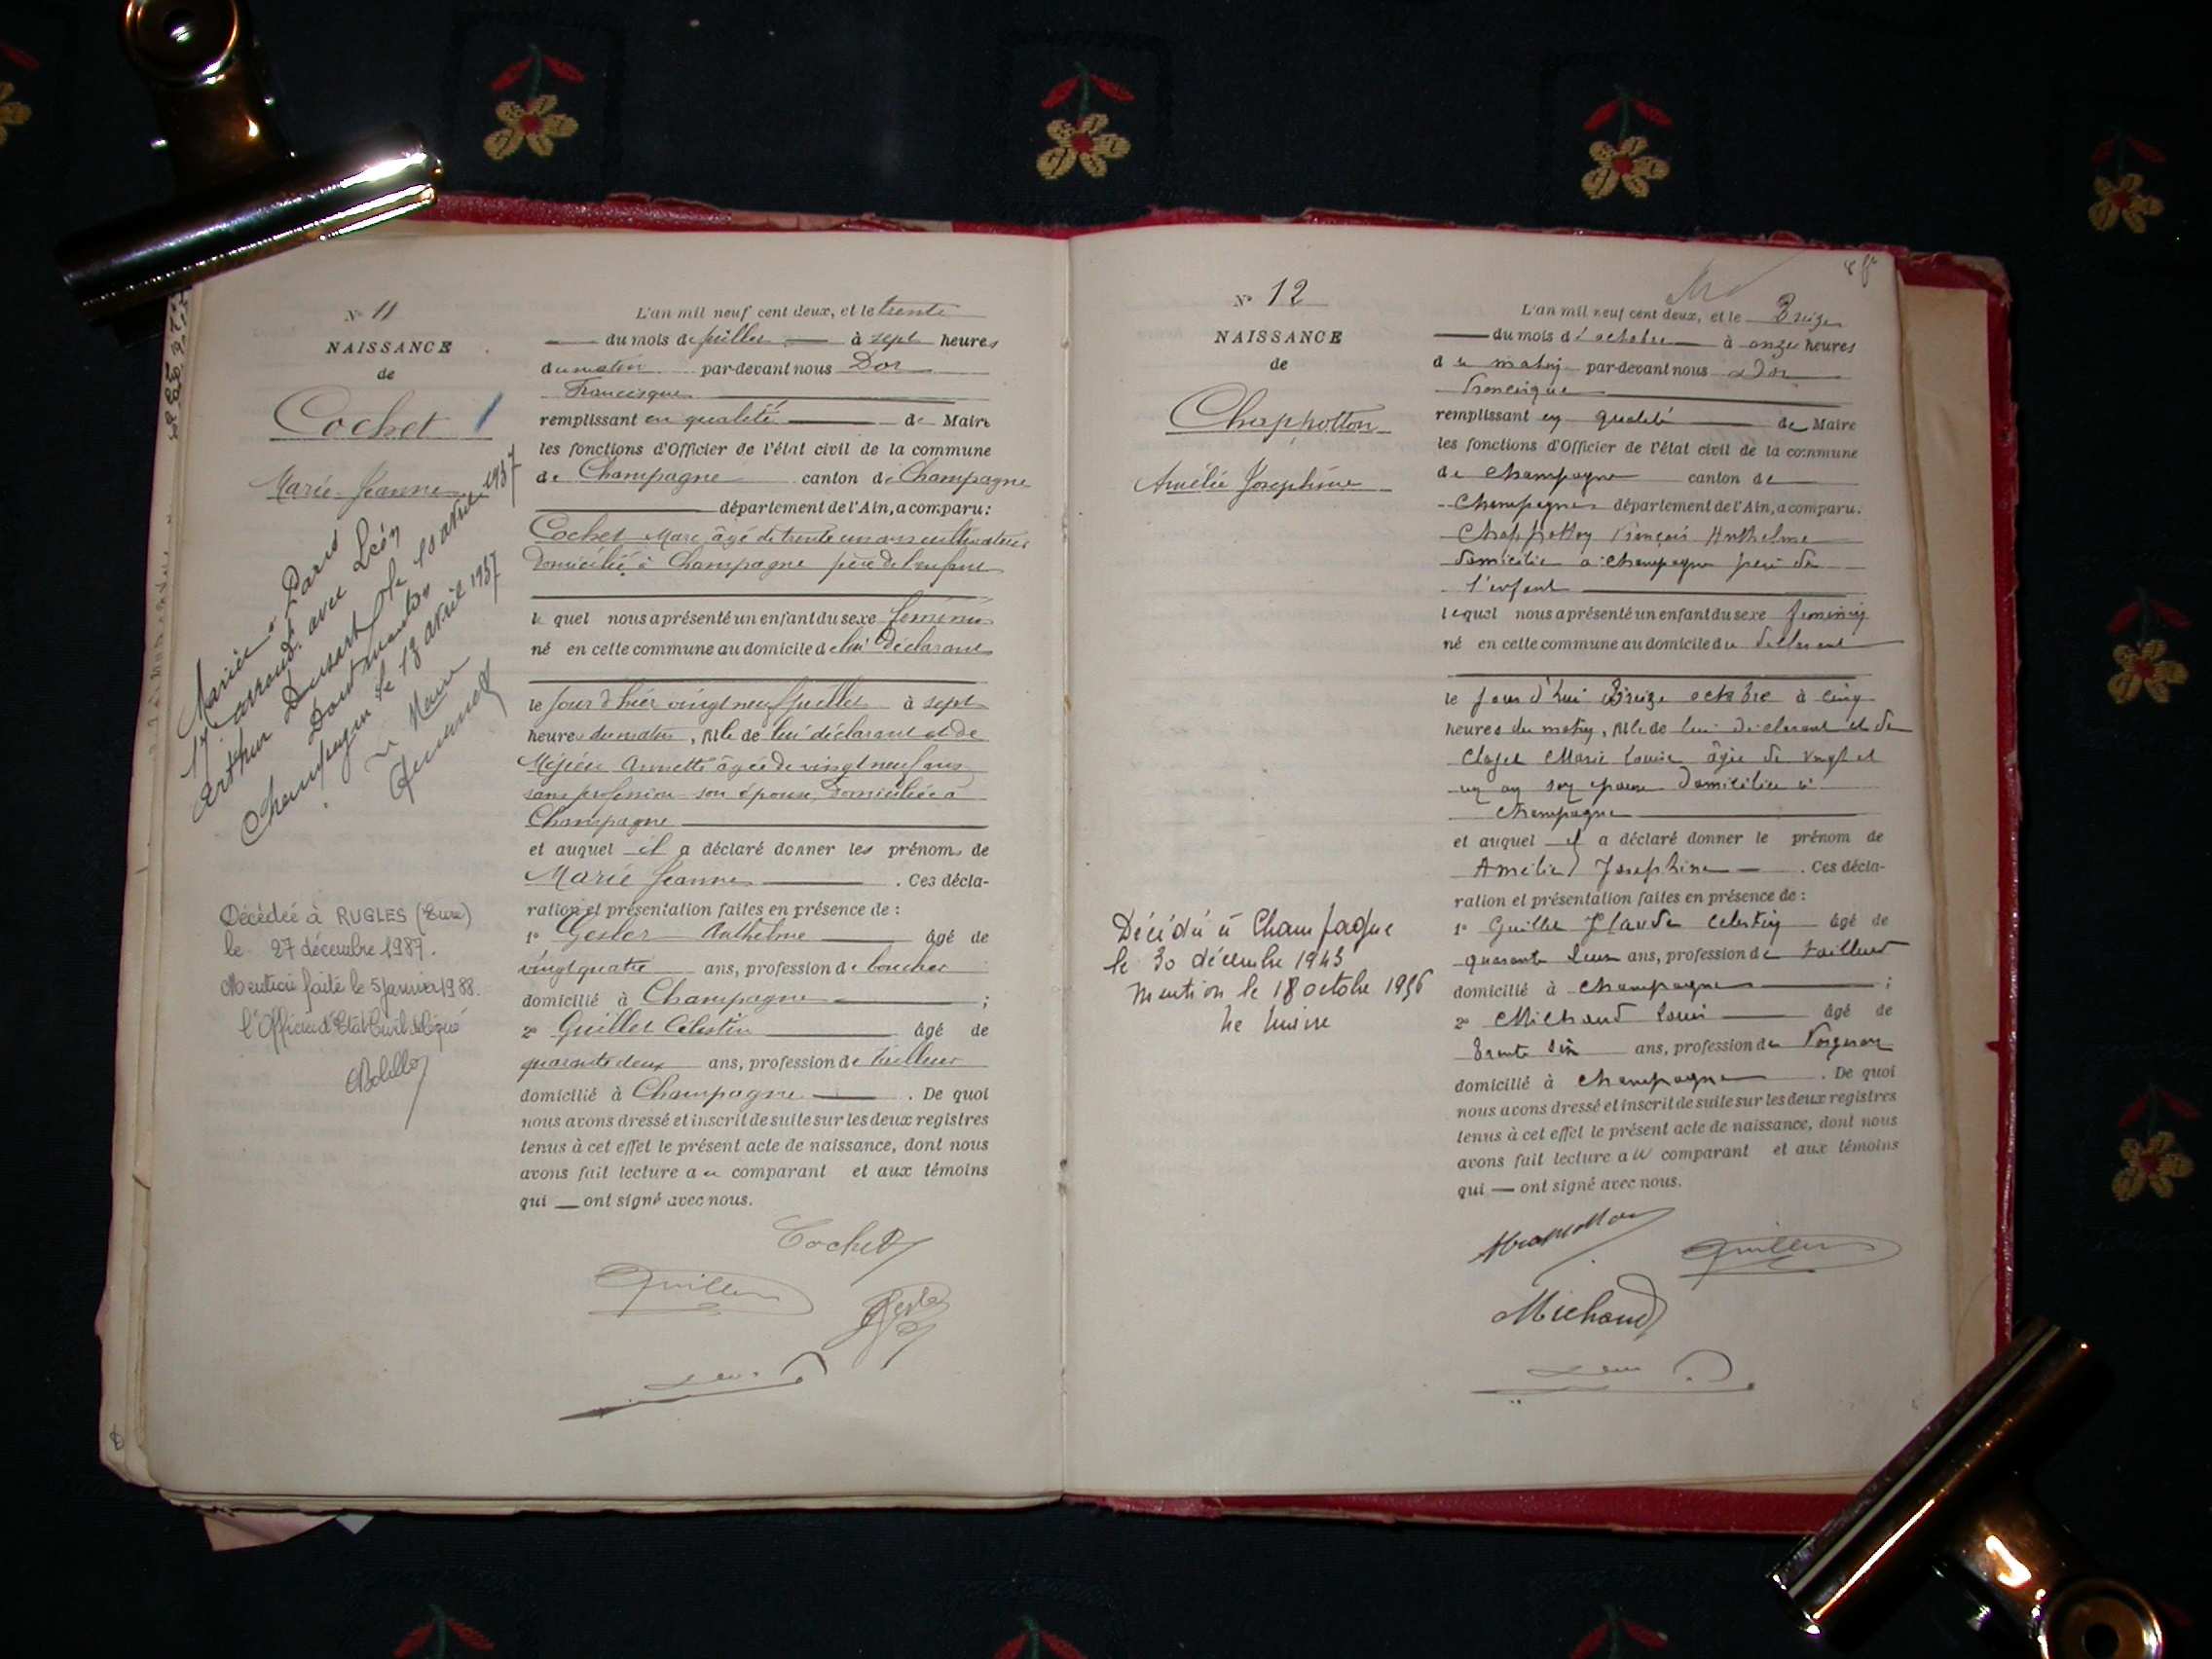 N° 11
NAISSANCE
de
Cochet
Marie Jeanne
Mariée à Paris
17e arrondt avec Léon
Arthur le 10 avril 1937
Champagne le 13 avril 1937
Le Maire
Décédée à RUGLES (Eure)
le 27 décembre 1987.
Mention faite le 5 janvier 1988.
l'Officier d'Etat Civil délégué
L'an mil neuf cent deux, et le trente
du mois de juillet à sept heures
du matin par-devant nous Dor
Francisque
remplissant en qualité de Maire
les fonctions d'Officier de l'état civil de la commune
de Champagne canton de Champagne
département de l'Ain, a comparu:
Cochet Marc âgé de trente un ans cultivateur
domicilié à Champagne père de l'enfant
le quel nous a présenté un enfant du sexe féminin
né en cette commune au domicile de lui déclarant
le jour d'hier vingt neuf juillet à sept
heures du matin, fille de lui déclarant et de
Annette âgée de vingt neuf ans
sans profession son épouse, domiciliée à
Champagne
et auquel il a déclaré donner les prénoms de
Marie Jeanne . Ces décla-
ration et présentation faites en présence de :
1° Gesler Anthelme âgé de
vingt quatre ans, profession de boucher
domicilié à Champagne ;
2° Guillet Célestin âgé de
quarante deux ans, profession de tailleur
domicilié à Champagne . De quoi
nous avons dressé et inscrit de suite sur les deux registres
tenus à cet effet le présent acte de naissance, dont nous
avons fait lecture au comparant et aux témoins
qui ont signé avec nous.
Cochet
Guillet
Gesler
N° 12
NAISSANCE
de
Chapotton
Amélie Joséphine
Décédée à Champagne
le 30 décembre 1943
Mention le 18 octobre 1956
Le Maire
L'an mil neuf cent deux, et le Treize
du mois d'octobre à onze heures
du matin par-devant nous Dor
Francisque
remplissant en qualité de Maire
les fonctions d'Officier de l'état civil de la commune
de Champagne canton de
Champagne département de l'Ain, a comparu:
François Anthelme
domicilié à Champagne père de
l'enfant
lequel nous a présenté un enfant du sexe féminin
né en cette commune au domicile du déclarant
le jour d'hui Treize octobre à cinq
heures du matin, fille de lui déclarant et de
Marie Louise âgée de vingt et
un an son épouse domiciliée à
Champagne
et auquel il a déclaré donner le prénom de
Amélie Joséphine . Ces décla-
ration et présentation faites en présence de :
1° Guillet Claude Célestin âgé de
quarante deux ans, profession de tailleur
domicilié à Champagne ;
2° Michaud Louis âgé de
Trente six ans, profession de forgeron
domicilié à Champagne . De quoi
nous avons dressé et inscrit de suite sur les deux registres
tenus à cet effet le présent acte de naissance, dont nous
avons fait lecture au comparant et aux témoins
qui ont signé avec nous.
Guillet
Michaud